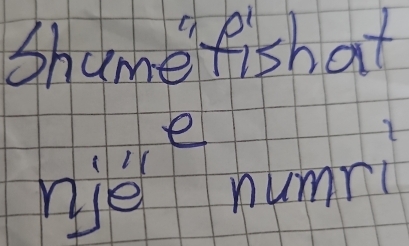 Shumëfishat
e
një numri